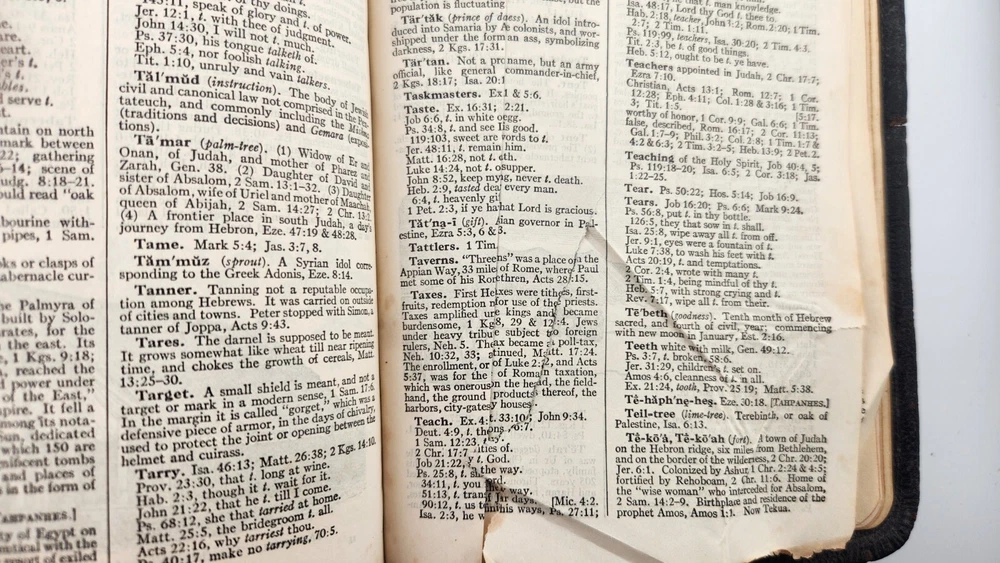 are.
eart.
er's t.
's t.
bles.
serve t.
t.
tain on north
mark between
22; gathering
5-14; scene of
udg. 8:18-21.
ould read "oak
bourine with-
pipes, 1 Sam.
oks or clasps of
abernacle cur-
he Palmyra of
built by Solo-
rates, for the
the east. Its
1 Kgs. 9:18;
, reached the
d power under
of the East,
pire. It fell a
mong its nota-
sun, dedicated
which 150 are
nificent tombs
and places of
is in the form of
TAHPANHES.]
ty of Egypt on
of exiled
of thy doings.
143:11, speak of glory and t. of power.
Jer. 12:1, t. with thee of judgment.
John 14:30, I will not t. much.
Ps. 37:30, his tongue talketh of.
Eph. 5:4, nor foolish talking.
Tit. 1:10, unruly and vain talkers.
Tăl'mŭd (instruction). The body of Jewish
civil and canonical law not comprised in the Pen-
tateuch, and commonly including the Mishna
(traditions and decisions) and Gemara (exposi-
tions).
Tā'mar (palm-tree). (1) Widow of Er and
Onan, of Judah, and mother of Pharez and
Zarah, Gen. 38. (2) Daughter of David and
sister of Absalom, 2 Sam. 13:1-32. (3) Daughter
of Absalom, wife of Uriel and mother of Maachah,
queen of Abijah, 2 Sam. 14:27; 2 Chr. 13:2.
(4) A frontier place in south Judah, a day's
journey from Hebron, Eze. 47:19 & 48:28.
Tame. Mark 5:4; Jas. 3:7, 8.
Tăm'mŭz (sprout). A Syrian idol corre-
sponding to the Greek Adonis, Eze. 8:14.
Tanner. Tanning not a reputable occupa-
tion among Hebrews. It was carried on outside
of cities and towns. Peter stopped with Simon, a
tanner of Joppa, Acts 9:43.
Tares. The darnel is supposed to be meant.
It grows somewhat like wheat till near ripening
time, and chokes the growth of cereals, Matt.
13:25-30.
Target. A small shield is meant, and not a
target or mark in a modern sense, 1 Sam. 17:6.
In the margin it is called "gorget," which was a
defensive piece of armor, in the days of chivalry,
used to protect the joint or opening between the
helmet and cuirass.
Tarry. Isa. 46:13; Matt. 26:38; 2 Kgs. 14:10.
Prov. 23:30, that t. long at wine.
Hab. 2:3, though it t. wait for it.
John 21:22, that he t. till I come.
Ps. 68:12, she that tarried at home.
Matt. 25:5, the bridegroom t. all.
Acts 22:16, why tarriest thou.
Ps. 40:17, make no tarrying, 70:5.
population is fluctuating
Tär'tăk (prince of daess). An idol intro-
duced into Samaria by Æ colonists, and wor-
shipped under the forman ass, symbolizing
darkness, 2 Kgs. 17:31.
Tär'tan. Not a proname, but an army
official, like general commander-in-chief,
2 Kgs. 18:17; Isa. 20:1
Taskmasters. Ex1 & 5:6.
Taste. Ex. 16:31; 2:21.
Job 6:6, t. in white oegg.
Ps. 34:8, t. and see lis good.
119:103, sweet are rords to t.
Jer. 48:11, t. remain him.
Matt. 16:28, not t. eth.
Luke 14:24, not t. osupper.
John 8:52, keep myig, never t. death.
Heb. 2:9, tasted dea every man.
6:4, t. heavenly gif
1 Pet. 2:3, if ye hahat Lord is gracious.
Tăt'na-ī (gift). sian governor in Pal-
estine, Ezra 5:3, 6 & 3.
Tattlers. 1 Tim.
Taverns. "Threens" was a place on the
Appian Way, 33 mile of Rome, where Paul
met some of his Rorethren, Acts 28:15.
Taxes. First Hetxes were tithes, first-
fruits, redemption nfor use of the priests.
Taxes amplified ure kings and became
burdensome, 1 Kg8, 29 & 12:4. Jews
under heavy tribue subject to foreign
rulers, Neh. 5. Thax became a poll-tax,
Neh. 10:32, 33; atinued, Matt. 17:24.
The enrollment, or of Luke 2:2, and Acts
5:37, was for the of Roman taxation,
which was onerouson the head, the field-
hand, the ground products thereof, the
harbors, city-gates houses
Teach. Ex. 4: t. 33:10; John 9:34.
Deut. 4:9, t. thons, 6:7.
1 Sam. 12:23, ay.
2 Chr. 17:7 ities of.
Job 21:22, y t. God.
Ps. 25:8, t. s the way.
34:11, t. you
51:13, t. tran way.
90:12, t. us [Mic. 4:2.
Isa. 2:3, he w his ways, Ps. 27:11;
that man knowledge.
Isa. 48:17, Lord thy God t. thee to.
Hab. 2:18, teacher, John 3:2; Rom. 2:20; 1 Tim.
2:7; 2 Tim. 1:11.
Ps. 119:99, teachers, Isa. 30:20; 2 Tim. 4:3.
Tit. 2:3, be t. of good things.
Heb. 5:12, ought to be t. ye have.
Teachers appointed in Judah, 2 Chr. 17:7;
Ezra 7:10.
Christian, Acts 13:1; Rom. 12:7; 1 Cor.
12:28; Eph. 4:11; Col. 1:28 & 3:16; 1 Tim.
3; Tit. 1:5. [5:17.
worthy of honor, 1 Cor. 9:9; Gal. 6:6; 1 Tim.
false, described, Rom. 16:17; 2 Cor. 11:13;
Gal. 1:7-9; Phil. 3:2; Col. 2:8; 1 Tim. 1:7 &
4:2 & 6:3; 2 Tim. 3:2-5; Heb. 13:9; 2 Pet. 2.
Teaching of the Holy Spirit, Job 40:4, 5;
Ps. 119:18-20; Isa. 6:5; 2 Cor. 3:18; Jas.
1:22-25.
Tear. Ps. 50:22; Hos. 5:14; Job 16:9.
Tears. Job 16:20; Ps. 6:6; Mark 9:24.
Ps. 56:8, put t. in thy bottle.
126:5, they that sow in t. shall.
Isa. 25:8, wipe away all t. from off.
Jer. 9:1, eyes were a fountain of t.
Luke 7:38, to wash his feet with t.
Acts 20:19, t. and temptations.
2 Cor. 2:4, wrote with many t.
2 Tim. 1:4, being mindful of thy t.
Heb. 5:7, with strong crying and t.
Rev. 7:17, wipe all t. from their.
Tē'beth (goodness). Tenth month of Hebrew
sacred, and fourth of civil, year; commencing
with new moon in January, Est. 2:16.
Teeth white with milk, Gen. 49:12.
Ps. 3:7, t. broken, 58:6.
Jer. 31:29, children's t. set on.
Amos 4:6, cleanness of t. in all.
Ex. 21:24, tooth, Prov. 25:19; Matt. 5:38.
Tê-hăph'ne-heş. Eze. 30:18. [TAHPANHES.]
Teil-tree (lime-tree). Terebinth, or oak of
Palestine, Isa. 6:13.
Tê-kō'à, Tê-kō'ah (fort). A town of Judah
on the Hebron ridge, six miles from Bethlehem,
and on the border of the wilderness, 2 Chr. 20:20;
Jer. 6:1. Colonized by Ashur, 1 Chr. 2:24 & 4:5;
fortified by Rehoboam, 2 Chr. 11:6. Home of
the "wise woman" who interceded for Absalom,
2 Sam. 14:2-9, Birthplace and residence of the
prophet Amos, Amos 1:1. Now Tekua.